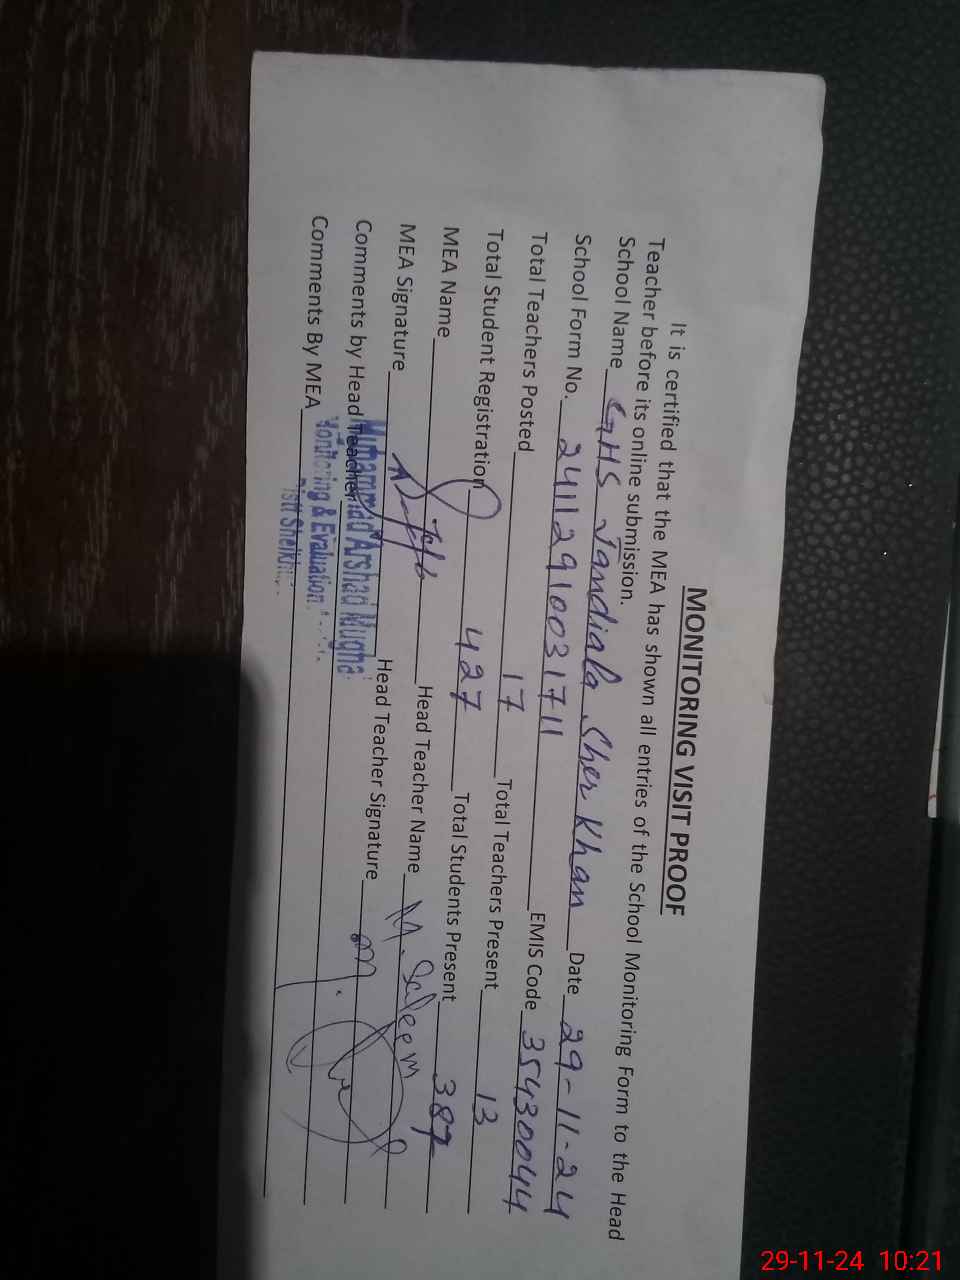 MONITORING VISIT PROOF
It is certified that the MEA has shown all entries of the School Monitoring Form to the Head
Teacher before its online submission.
School Name GHS Jandiala Sher Khan Date 29-11-24
School Form No. 24112910031711 EMIS Code 35430044
Total Teachers Posted 17 Total Teachers Present 13
Total Student Registration 427 Total Students Present 387
MEA Name Head Teacher Name M. Saleem
MEA Signature Head Teacher Signature
Comments by Head Teacher
Muhammad Arshad Mughal
Comments By MEA
Monitoring & Evaluation
Distt Sheikh
29-11-24 10:21